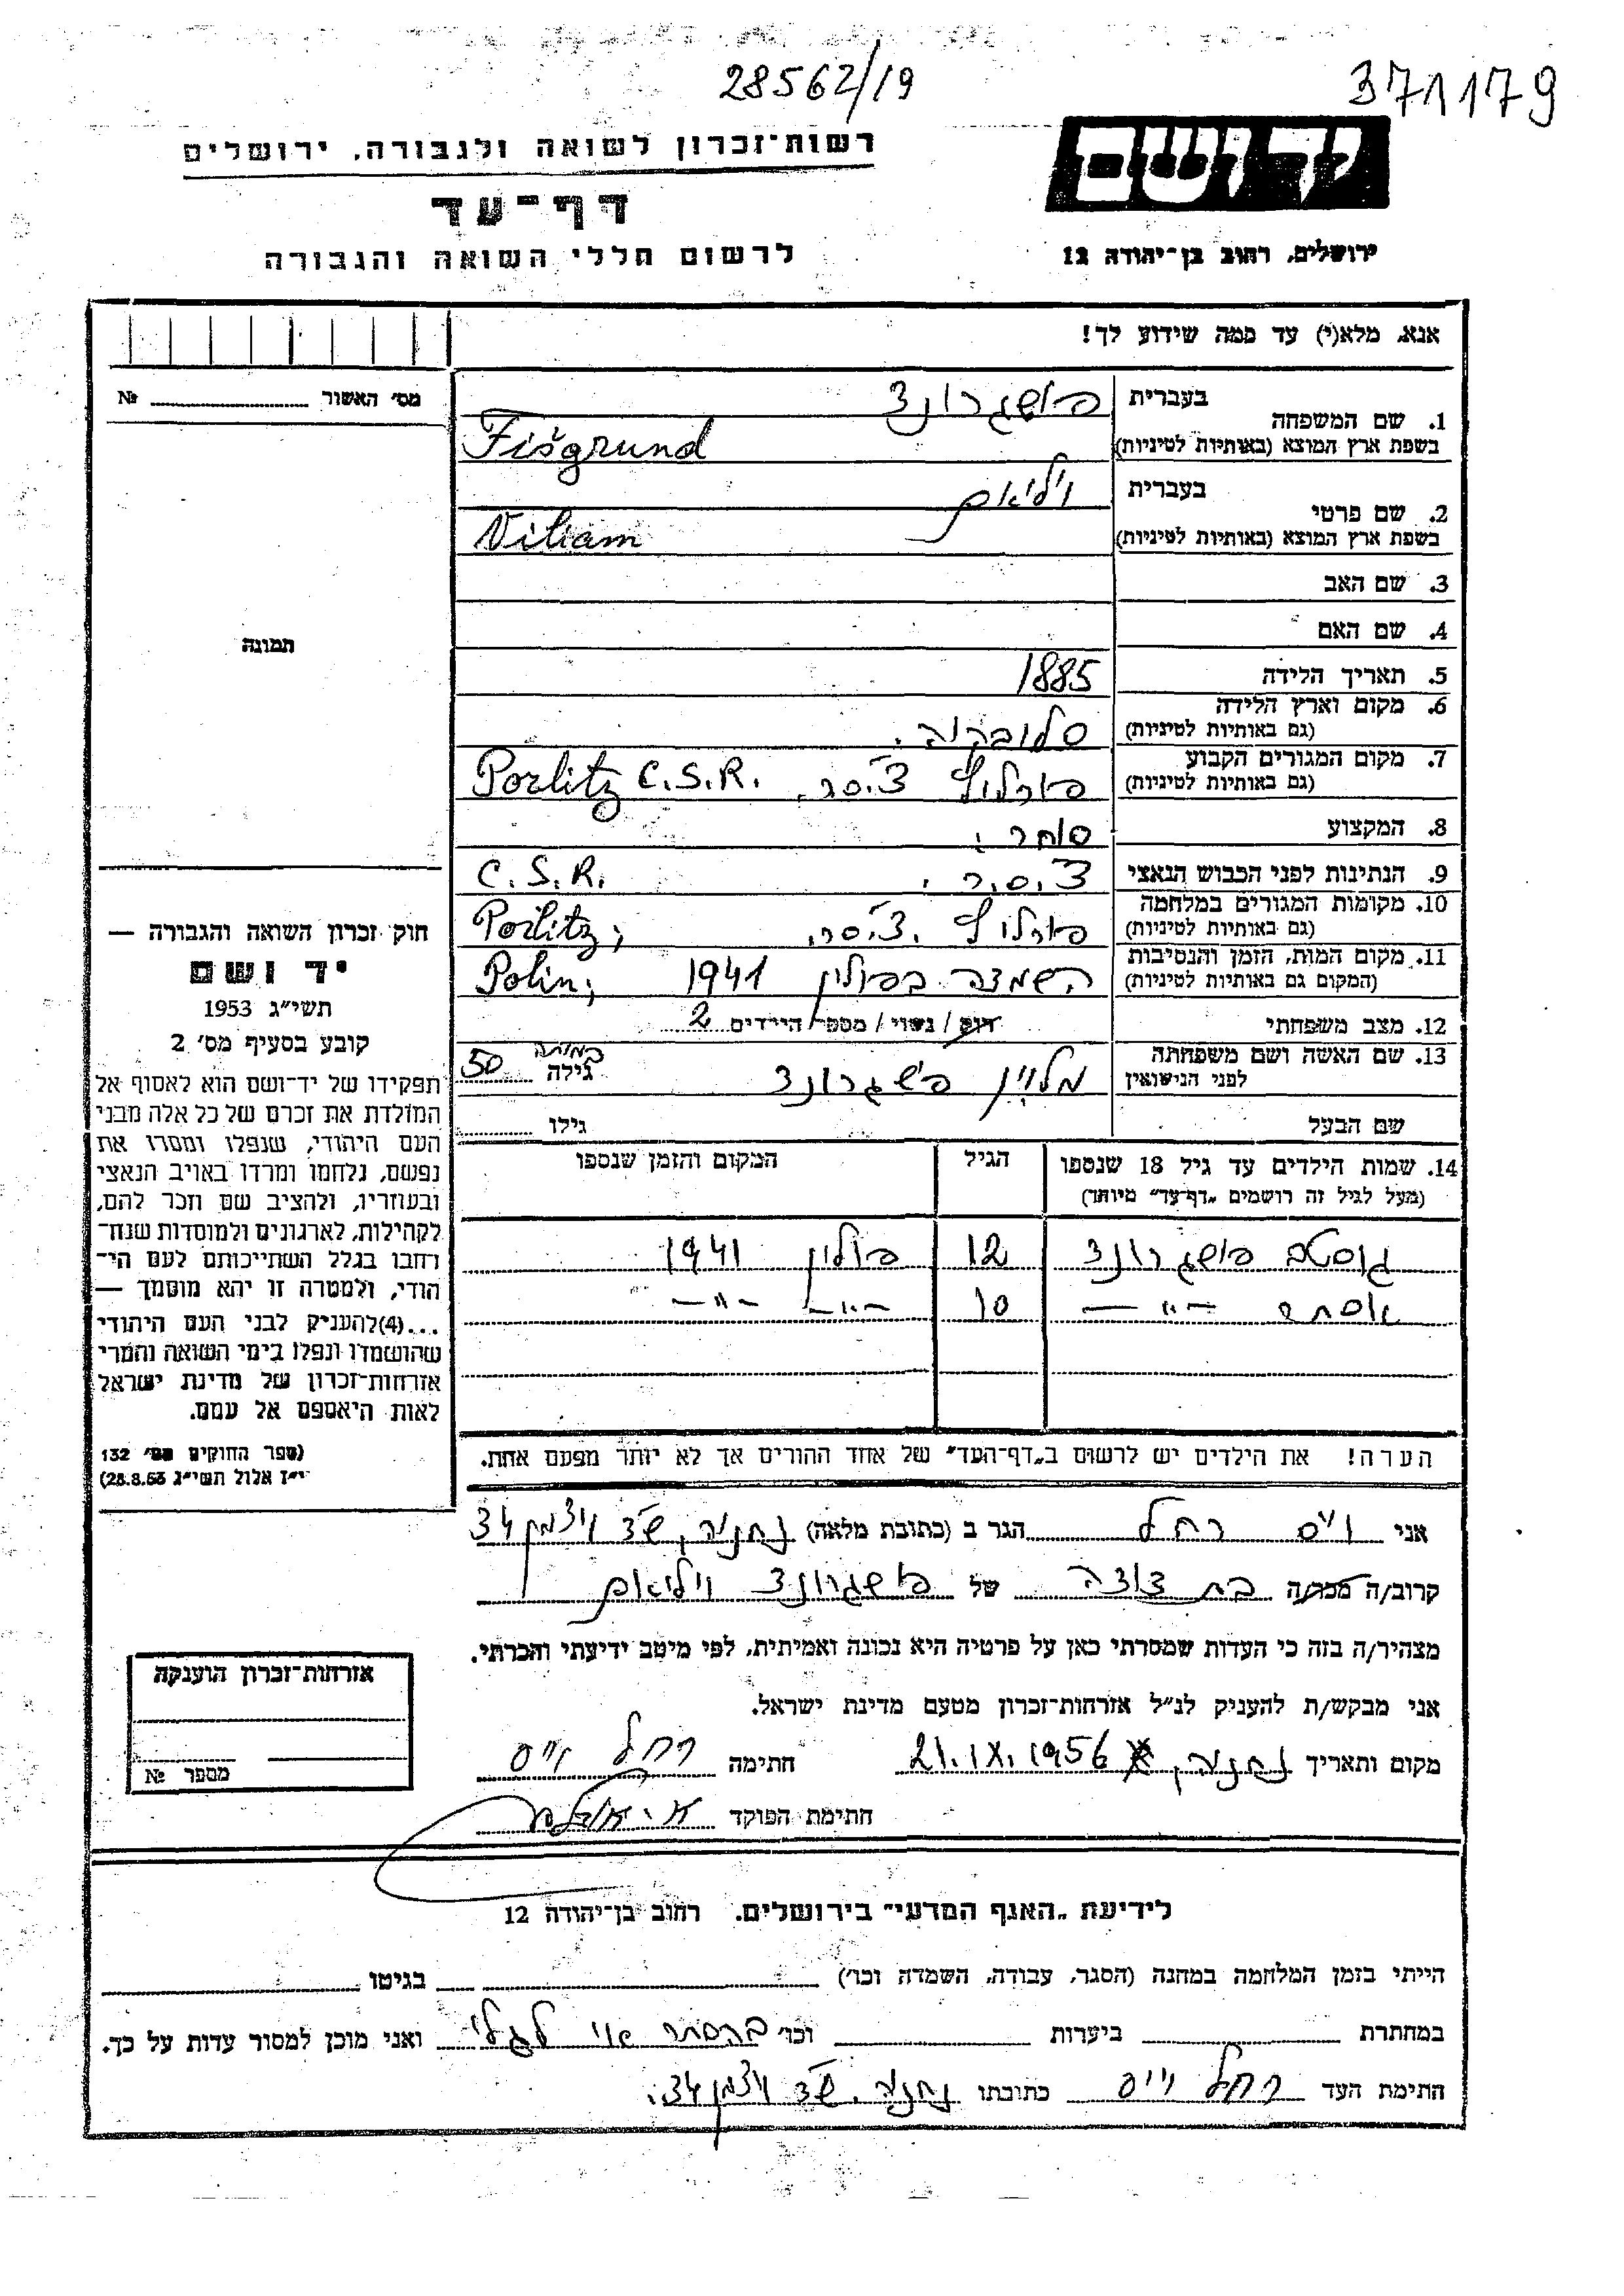 28562/19
371179
יד ושם
רשות־זכרון לשואה ולגבורה, ירושלים
דף־עד
לרשום חללי השואה והגבורה
ירושלים, רחוב בן־יהודה 12
אנא, מלא(י) עד כמה שידוע לך!
מס' האשור № 
תמונה
חוק זכרון השואה והגבורה —
יד ושם
תשי"ג 1953
קובע בסעיף מס' 2
תפקידו של יד־ושם הוא לאסוף אל
המולדת את זכרם של כל אלה מבני
העם היהודי, שנפלו ומסרו את
נפשם, נלחמו ומרדו באויב הנאצי
ובעוזריו, ולהציב שם וזכר להם,
לקהילות, לארגונים ולמוסדות שנח־
רחבו בגלל השתייכותם לעם הי־
הודי, ולמטרה זו יהא מוסמך —
...(4)להעניק לבני העם היהודי
שהושמדו ונפלו בימי השואה והמרי
אזרחות־זכרון של מדינת ישראל
לאות היאספם אל עמם.
(ספר החוקים מס' 132
י"ז אלול תשי"ג 28.8.53)
בעברית פישגרונד
1. שם המשפחה
בשפת ארץ המוצא (באותיות לטיניות) Fišgrund
בעברית ויליאם
2. שם פרטי
בשפת ארץ המוצא (באותיות לטיניות) Viliam
3. שם האב
4. שם האם
5. תאריך הלידה 1885
6. מקום וארץ הלידה
(גם באותיות לטיניות) סלובקיה.
7. מקום המגורים הקבוע
(גם באותיות לטיניות) פורליץ צ'.ס.ר. Porlitz C.S.R.
8. המקצוע סוחר.
9. הנתינות לפני הכבוש הנאצי צ'.ס.ר. C.S.R.
10. מקומות המגורים במלחמה
(גם באותיות לטיניות) פורליץ צ'.ס.ר. Porlitz,
11. מקום המות, הזמן והנסיבות
(המקום גם באותיות לטיניות) השמדה בפולין 1941 Polin,
12. מצב משפחתי רווק / נשוי / מספר הילדים 2
13. שם האשה ושם משפחתה
לפני הנישואין מלוין פישגרונד במותה גילה 50
שם הבעל גילו
14. שמות הילדים עד גיל 18 שנספו הגיל המקום והזמן שנספו
(מעל לגיל זה רושמים „דף־עד" מיוחד)
גוסטב פישגרונד 12 פולין 1941
אסתר —"— 10 —"— —"—
הערה! את הילדים יש לרשום ב„דף־העד" של אחד ההורים אך לא יותר מפעם אחת.
אני וייס רחל הגר ב (כתובת מלאה) נתניה, שד ויצמן 34
קרוב/ה מכר/ה בת דודה של פישגרונד ויליאם
מצהיר/ה בזה כי העדות שמסרתי כאן על פרטיה היא נכונה ואמיתית, לפי מיטב ידיעתי והכרתי.
אני מבקש/ת להעניק לנ"ל אזרחות־זכרון מטעם מדינת ישראל.
מקום ותאריך נתניה, 21.IX.1956 חתימה רחל וייס
חתימת הפוקד
אזרחות־זכרון הוענקה
מספר №
לידיעת „האגף המדעי" בירושלים, רחוב בן־יהודה 12
הייתי בזמן המלחמה במחנה (הסגר, עבודה, השמדה וכו') בגיטו
במחתרת ביערות וכו' בהסתר ואני מוכן למסור עדות על כך.
חתימת העד רחל וייס כתובתו נתניה, שד ויצמן 34.